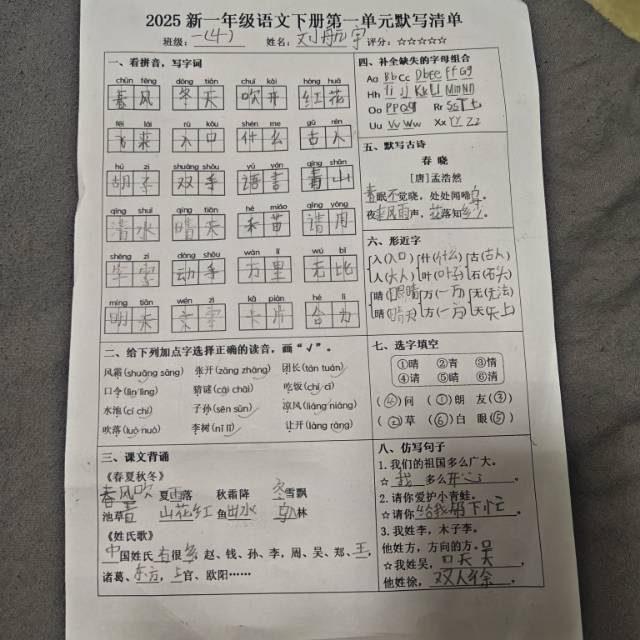 2025 新一年级语文下册第一单元默写清单
班级：一(4) 姓名：刘航宇 评分：☆☆☆☆☆
一、看拼音，写字词
chūn fēng dōng tiān chuī kāi hóng huā
春风 冬天 吹开 红花
fēi lái rù kǒu shén me gǔ rén
飞来 入口 什么 古人
hú zi shuāng shǒu yǔ yán qīng shān
胡子 双手 语言 青山
qīng shuǐ qíng tiān hé miáo qǐng yòng
清水 晴天 禾苗 请用
shēng zì dòng shǒu wàn lǐ wú bǐ
生字 动手 万里 无比
míng tiān wén zì kǎ piàn hé lì
明天 卡片 合力
二、给下列加点字选择正确的读音，画“√”。
风霜(shuāng sāng) 张开(zāng zhāng) 团长(tán tuán)
口令(lìn lìng) 猜谜(cāi chāi) 吃饭(chī cī)
水池(cí chí) 子孙(sēn sūn) 凉风(liáng niáng)
吹落(luò nuò) 李树(nǐ lǐ) 让开(làng ràng)
三、课文背诵
《春夏秋冬》
春风吹 夏雨落 秋霜降 冬雪飘
池草青 山花红 鱼出水 鸟入林
《姓氏歌》
中国姓氏有很多 赵、钱、孙、李，周、吴、郑、王，
诸葛、东方，上官、欧阳……
四、补全缺失的字母组合
Aa Bb Cc Dd Ee Ff Gg
Hh Ii Jj Kk Ll Mm Nn
Oo Pp Qq Rr Ss Tt
Uu Vv Ww Xx Yy Zz
五、默写古诗
春 晓
[唐]孟浩然
春眠不觉晓，处处闻啼鸟。
夜来风雨声，花落知多少。
六、形近字
入(入口) 什(什么) 古(古人)
人(大人) 叶(叶子) 石(石头)
睛(眼睛) 万(一万) 无(无法)
晴(晴天) 方(一方) 天(天上)
七、选字填空
①晴 ②青 ③情
④请 ⑤睛 ⑥清
(④)问 (①)朗 友(③)
(②)草 (⑥)白 眼(⑤)
八、仿写句子
1. 我们的祖国多么广大。
☆ 我 多么开心。
2. 请你爱护小青蛙。
☆请你给我帮下忙。
3. 我姓李，木子李。
他姓方，方向的方。
☆我姓吴，口天吴。
他姓徐，双人徐。